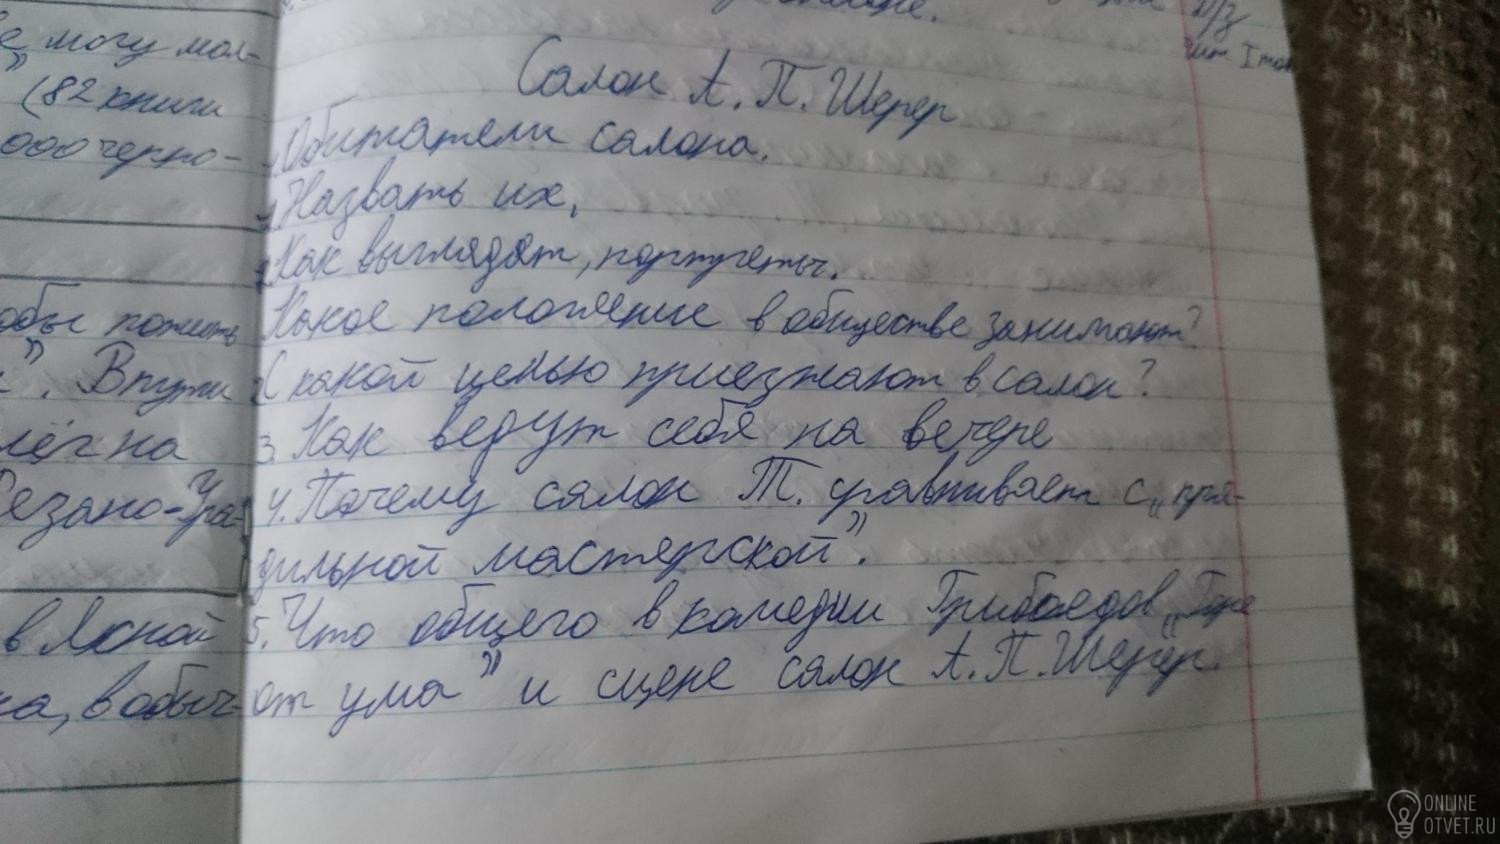 е могу мол-
" (82 книги
000 черно-
обы пожить
". В пути
лёг на
Резано-Ура-
в Ясной
на, в обыч-
Д/з
чит. I том
Салон А. П. Шерер
Обитатели салона.
Назвать их.
Как выглядят, портреты.
Какое положение в обществе занимают?
2 С какой целью приезжают в салон?
3. Как ведут себя на вечере
4. Почему салон Т. сравнивает с „пря-
дильной мастерской".
5. Что общего в комедии Грибоедов „Горе
от ума" и сцене „салон А. П. Шерер.
ONLINE
OTVET.RU